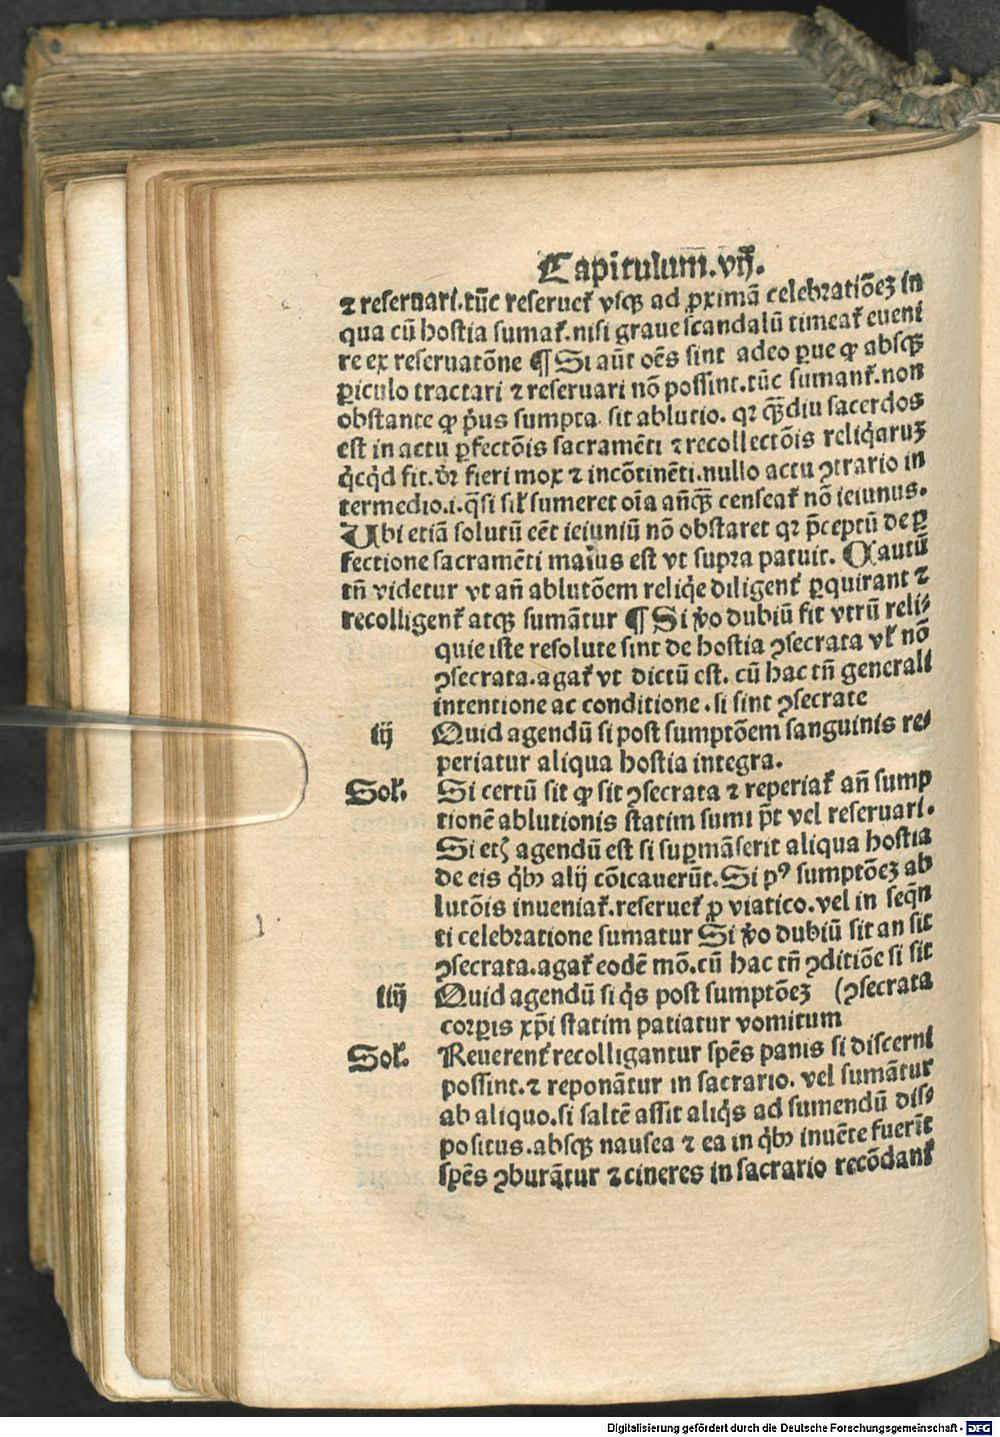 Capitulum.vij.
⁊ reseruari.tũc reserueť vsqȝ ad ꝓximã celebratiõeȝ in
qua cũ hostia sumať.nisi graue scandalũ timeať eueni
re ex reseruatõne ¶ Si aũt oẽs sint adeo ꝑue ꝙ absqȝ
ꝑiculo tractari ⁊ reseruari nõ possint.tũc sumanť.non
obstante ꝙ p̃us sumpta sit ablutio. qꝛ q̃ȝdiu sacerdos
est in actu ꝑfectõis sacramẽti ⁊ recollectõis reliq̃aruȝ
q̇cq̇d fit.dr̃ fieri mox ⁊ incõtinẽti.nullo actu ꝯtrario in
termedio.i.q̃si siľ sumeret oĩa añqȝ̃ censeať nõ ieiunus.
Ubi etiã solutũ eẽt ieiuniũ nõ obstaret qꝛ p̃ceptũ de ꝑ
fectione sacramẽti maius est vt supra patuit. Cautũ
tñ videtur vt añ ablutõem reliq̃e diligenť ꝑquirant ⁊
recolligenť atqȝ sumãtur ¶ Si ṽo dubiũ fit vtrũ reli⸗
quie iste resolute sint de hostia ꝯsecrata vľ nõ
ꝯsecrata.agať vt dictũ est. cũ hac tñ generali
intentione ac conditione.si sint ꝯsecrate
iij Quid agendũ si post sumptõem sanguinis re⸗
periatur aliqua hostia integra.
Soľ. Si certũ sit ꝙ sit ꝯsecrata ⁊ reperiať añ sump
tionẽ ablutionis statim sumi p̃t vel reseruari.
Si etȝ agendũ est si suꝑmãserit aliqua hostia
de eis q̇bꝫ alij cõicauerũt.Si pꝰ sumptõeȝ ab
lutõis inueniať.reserueť ꝓ viatico.vel in seq̃n
ti celebratione sumatur Si ṽo dubiũ sit an sit
ꝯsecrata.agať eodẽ mõ.cũ hac tñ ꝯditiõe si sit
iiij Quid agendũ si q̇s post sumptõeȝ (ꝯsecrata
corꝑis xp̃i statim patiatur vomitum
Soľ. Reuerenť recolligantur sp̃es panis si discerni
possint.⁊ reponãtur in sacrario. vel sumãtur
ab aliquo.si saltẽ assit aliq̇s ad sumendũ dis⸗
positus.absqȝ nausea ⁊ ea in q̇bꝫ inuẽte fuerĩt
sp̃es ꝯburãtur ⁊ cineres in sacrario recõdanť
Digitalisierung gefördert durch die Deutsche Forschungsgemeinschaft - DFG